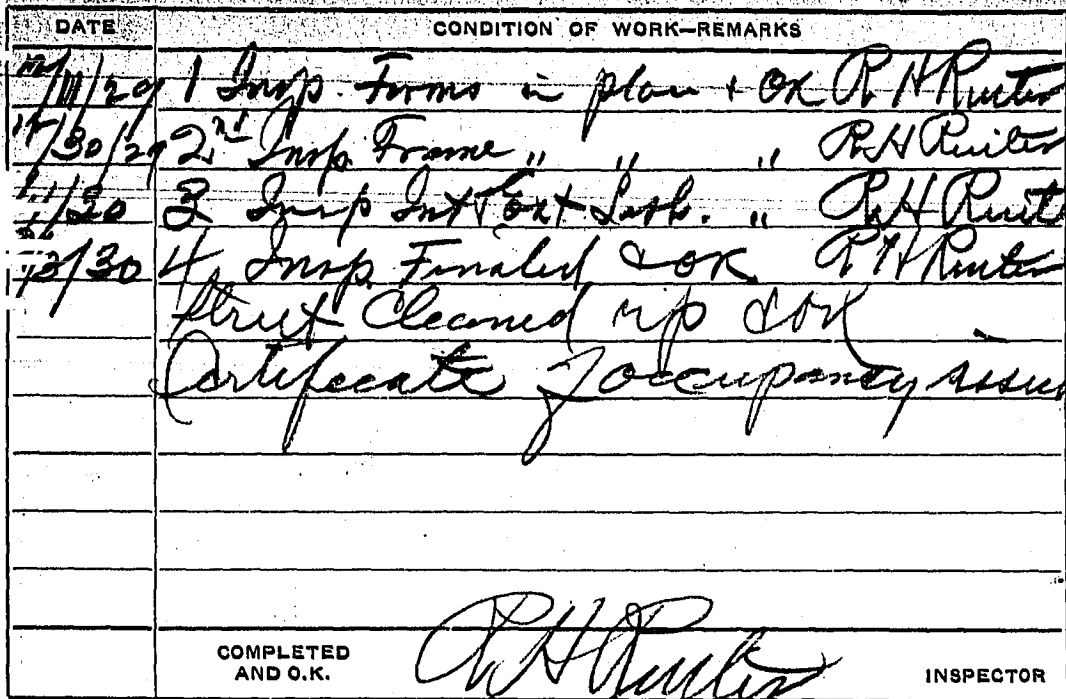 DATE CONDITION OF WORK—REMARKS
12/11/29 1 Insp. Forms in place + OK R H Ruiter
12/30/29 2nd Insp. Frame " " " R H Ruiter
3 Insp Int & Ext Lath. " R H Ruit
/30 4 Insp. Finaled & OK R H Ruiter
Street Cleaned up & OK
Certificate of occupancy issue
COMPLETED AND O.K. R H Ruiter INSPECTOR